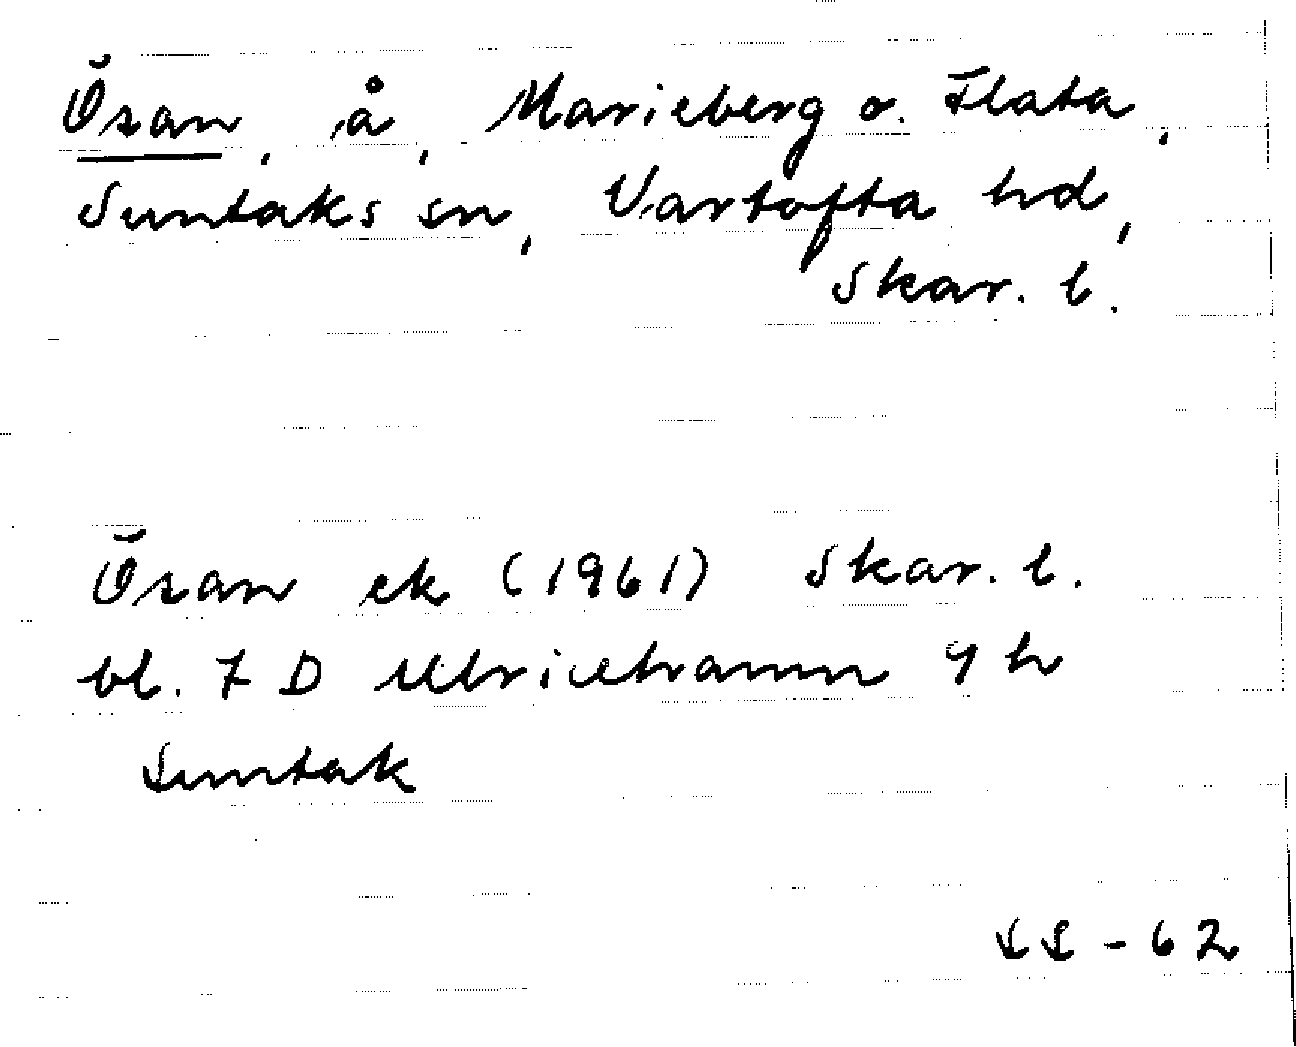 Ösan, å, Marieberg o. Flata,
Suntaks sn, Vartofta hd,
Skar. l.
Ösan ek (1961) Skar. l.
bl. 7 D Ulricehamn 9 h
Suntak
LL - 62